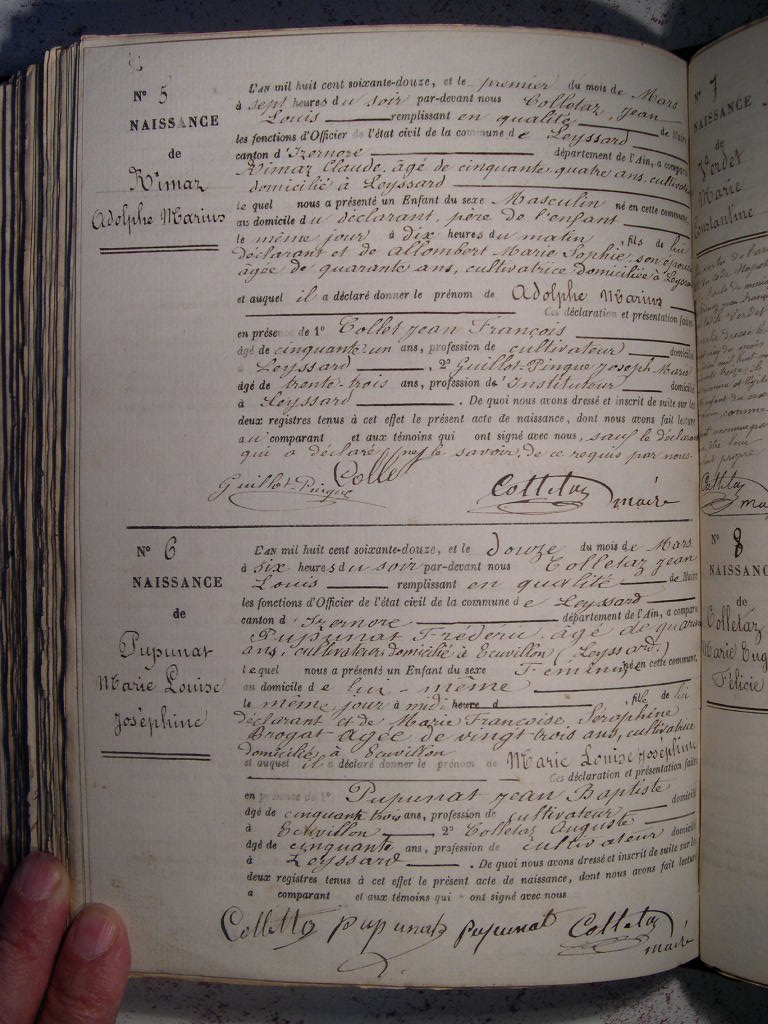 N° 5
NAISSANCE
de
Rimaz
Adolphe Marius
L'AN mil huit cent soixante-douze, et le premier du mois de Mars
à sept heures du soir par-devant nous Colletaz Jean
Louis remplissant en qualité de Maire
les fonctions d'Officier de l'état civil de la commune de Leyssard
canton d'Izernore département de l'Ain, a comparu
Rimaz Claude, âgé de cinquante quatre ans, cultivateur
domicilié à Leyssard
lequel nous a présenté un Enfant du sexe Masculin né en cette commune,
au domicile du déclarant, père de l'enfant
le même jour à dix heures du matin, fils de lui
déclarant et de Allombert Marie Sophie, son épouse
âgée de quarante ans, cultivatrice domiciliée à Leyssard
et auquel il a déclaré donner le prénom de Adolphe Marius
Ces déclaration et présentation faites
en présence de 1° Collet Jean François
âgé de cinquante un ans, profession de cultivateur domicilié
à Leyssard, 2° Guillot-Pingue Joseph Marie
âgé de trente-trois ans, profession de Instituteur domicilié
à Leyssard. De quoi nous avons dressé et inscrit de suite sur les
deux registres tenus à cet effet le présent acte de naissance, dont nous avons fait lecture
au comparant et aux témoins qui ont signé avec nous, sauf le déclarant
qui a déclaré ne le savoir, de ce requis par nous.
Guillot-Pingue Collet Colletaz maire
N° 6
NAISSANCE
de
Pupunat
Marie Louise
Josephine
L'AN mil huit cent soixante-douze, et le douze du mois de Mars
à six heures du soir par-devant nous Colletaz Jean
Louis remplissant en qualité de Maire
les fonctions d'Officier de l'état civil de la commune de Leyssard
canton d'Izernore département de l'Ain, a comparu
Pupunat Frédéric, âgé de quarante
ans, cultivateur, domicilié à Ecuvillon (Leyssard)
lequel nous a présenté un Enfant du sexe Féminin né en cette commune,
au domicile de lui-même
le même jour à midi heure d , fille de lui
déclarant et de Marie Françoise, Séraphine
Brogat âgée de vingt trois ans, cultivateur
domiciliés à Ecuvillon
et auquel il a déclaré donner le prénom de Marie Louise Josephine
Ces déclaration et présentation faites
en présence de 1° Pupunat Jean Baptiste
âgé de cinquante trois ans, profession de cultivateur domicilié
à Ecuvillon 2° Colletaz Auguste
âgé de cinquante ans, profession de cultivateur domicilié
à Leyssard. De quoi nous avons dressé et inscrit de suite sur les
deux registres tenus à cet effet le présent acte de naissance, dont nous avons fait lecture
a comparant et aux témoins qui ont signé avec nous
Colletaz Pupunat Pupunat Colletaz maire
N° 7
NAISSANCE
de
Verdet
Marie
Constantine
Colletaz
N° 8
NAISSANCE
de
Colletaz
Marie Eug
Félicie